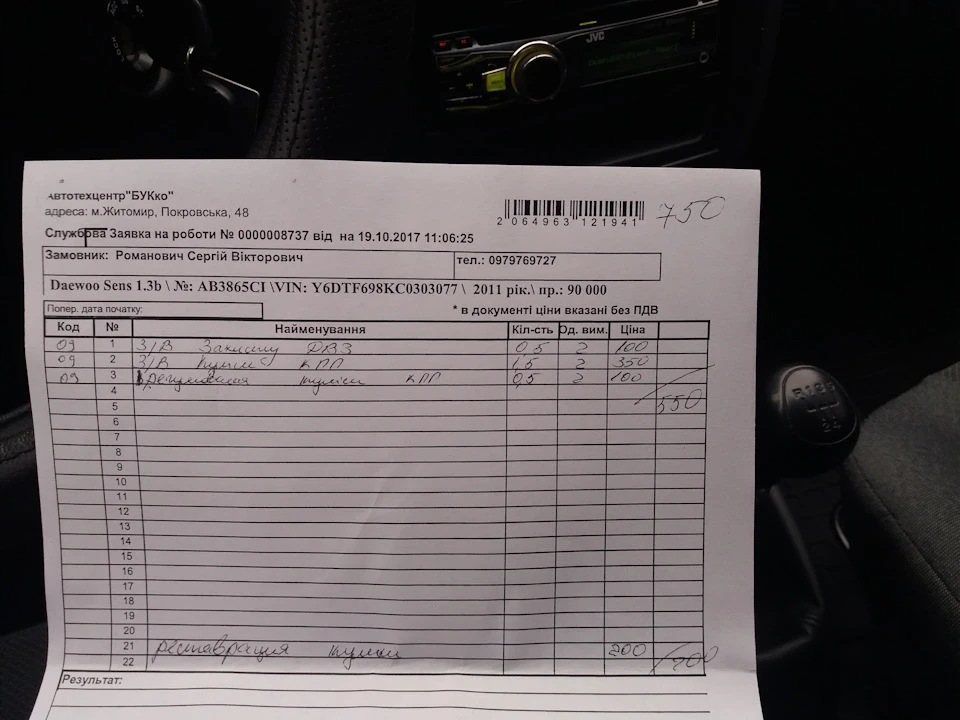 JVC
Автотехцентр"БУКко"
адреса: м.Житомир, Покровська, 48
2 064963 121941
750
Службова Заявка на роботи № 0000008737 від на 19.10.2017 11:06:25
Замовник: Романович Сергій Вікторович
тел.: 0979769727
Daewoo Sens 1.3b \ №: AB3865CI \VIN: Y6DTF698KC0303077 \ 2011 рік.\ пр.: 90 000
Попер. дата початку:
* в документі ціни вказані без ПДВ
Код № Найменування Кіл-сть Од. вим. Ціна
09 1 З/В ДВЗ 0,5 2 100
09 2 З/В КПП 1,5 2 350
09 3 КПП 0,5 2 100
4
5 550
6
7
8
9
10
11
12
13
14
15
16
17
18
19
20
21 реставрация 200
22
Результат: